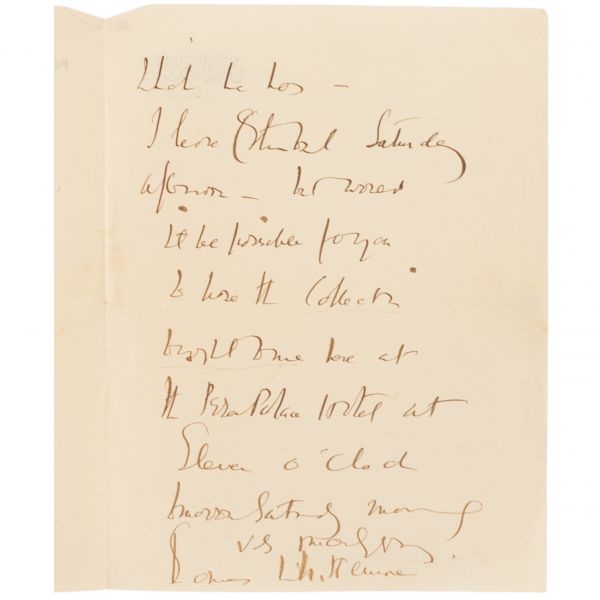 which he has —
I leave Stambul Saturday
afternoon — but would
it be possible for you
to have the Collection
brought to me here at
the Pera Palace Hotel at
Eleven o'clock
tomorrow Saturday morning
Thomas Whittemore